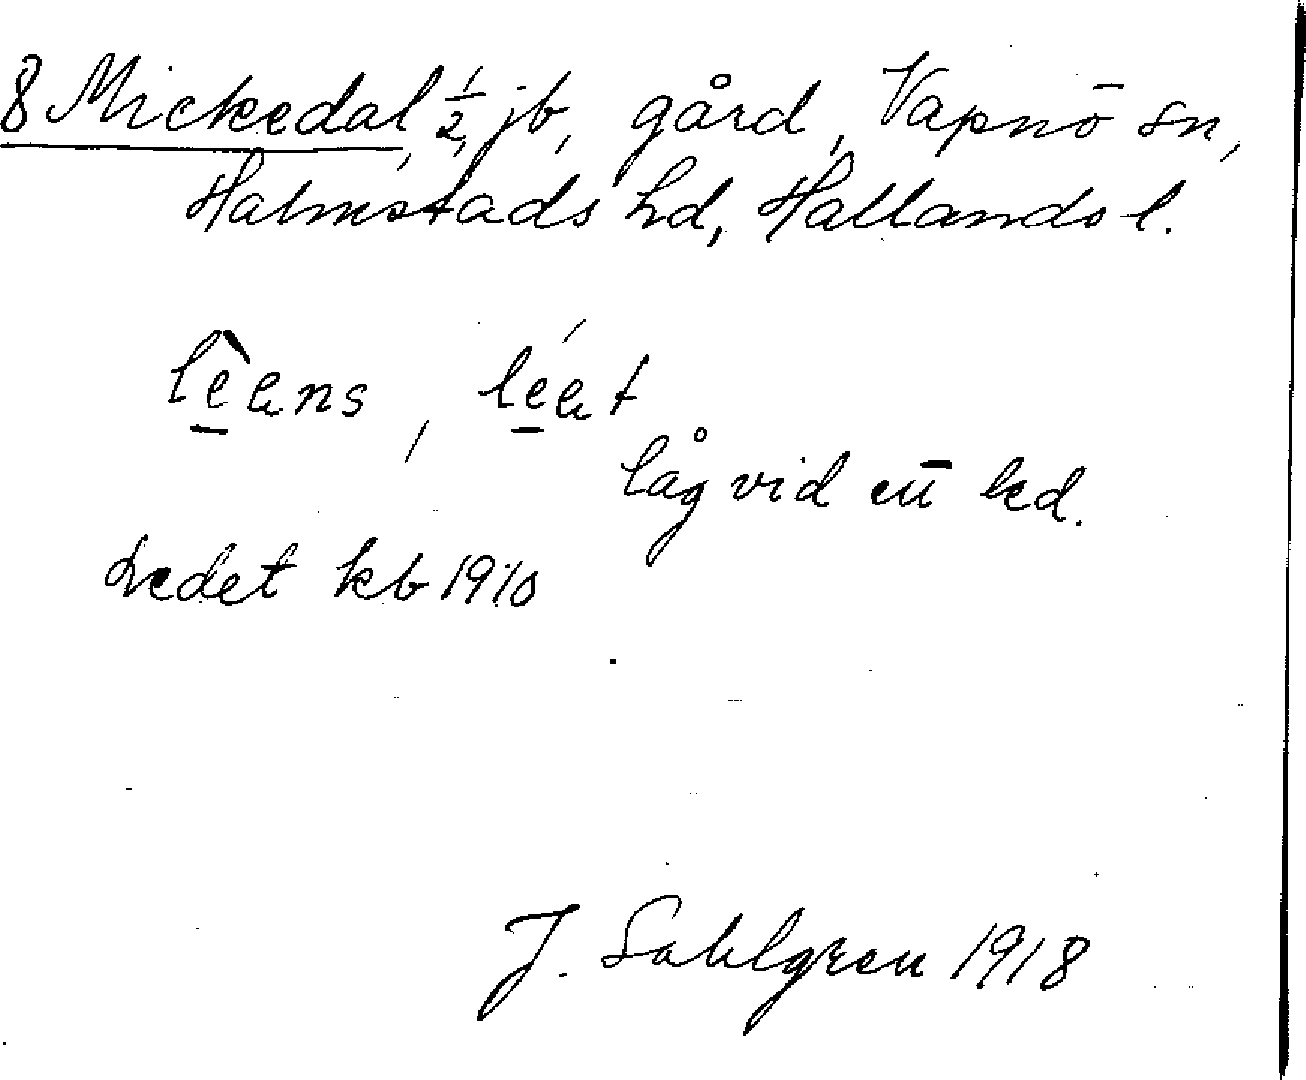 8 Mickedal, ½, jb, gård, Vapnö sn,
Halmstads hd, Hallands l.
låg vid ett led.
Ledet kb 1910
J. Sahlgren 1918